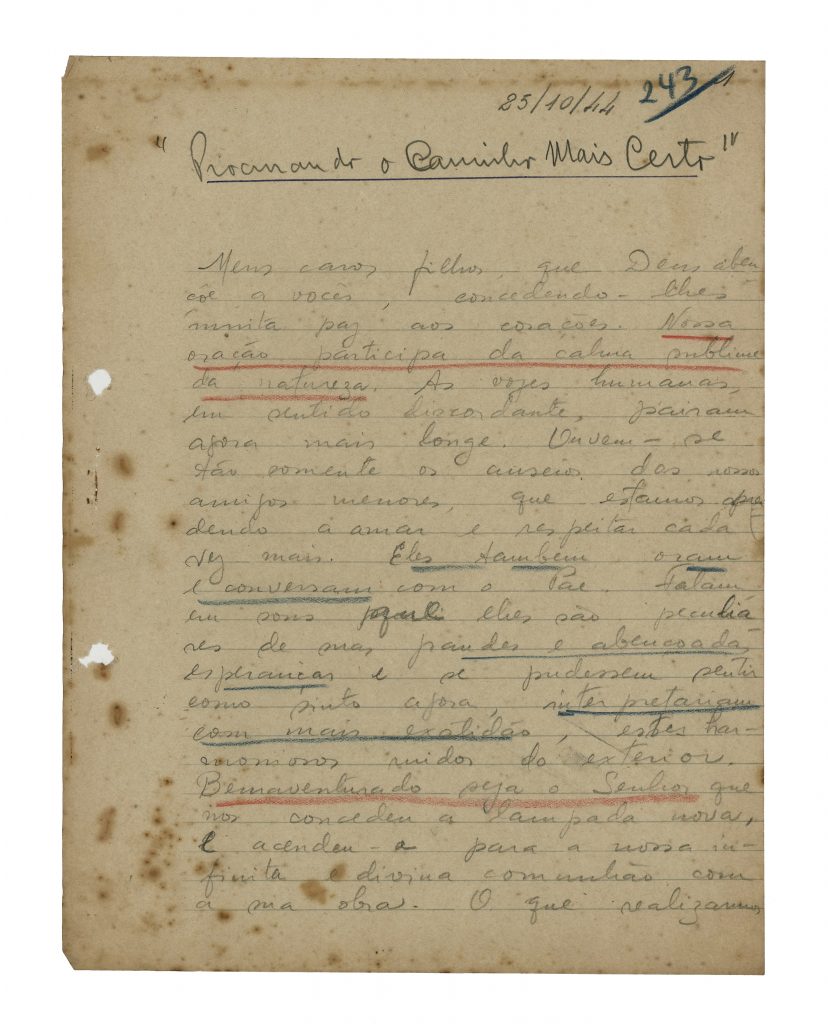 25/10/44 243 1
"Procurando o Caminho Mais Certo"
Meus caros filhos, que Deus aben
çõe a vocês, concedendo-lhes
muita paz aos corações. Nossa
oração participa da calma sublime
da natureza. As vozes humanas,
em sentido discordante, pairam
agora mais longe. Ouvem-se
tão somente os anseios dos nossos
amigos menores, que estamos apren
dendo a amar e respeitar cada
vez mais. Eles tambem oram
e conversam com o Pae. Falam
em sons que lhes são peculia
res de suas grandes e abençoadas
esperanças e se pudessem sentir
como sinto agora, interpretariam
com mais exatidão, estes har-
moniosos ruidos do exterior.
Bemaventurado seja o Senhor que
nos concedeu a lampada nova,
e acendeu-a para a nossa in-
finita e divina comunhão com
a sua obra. O que realizamos